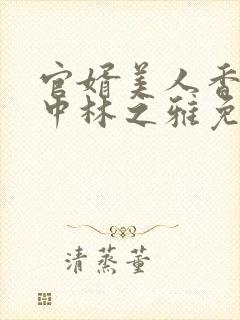 官婿美人香
中林之雅免
清蒸董